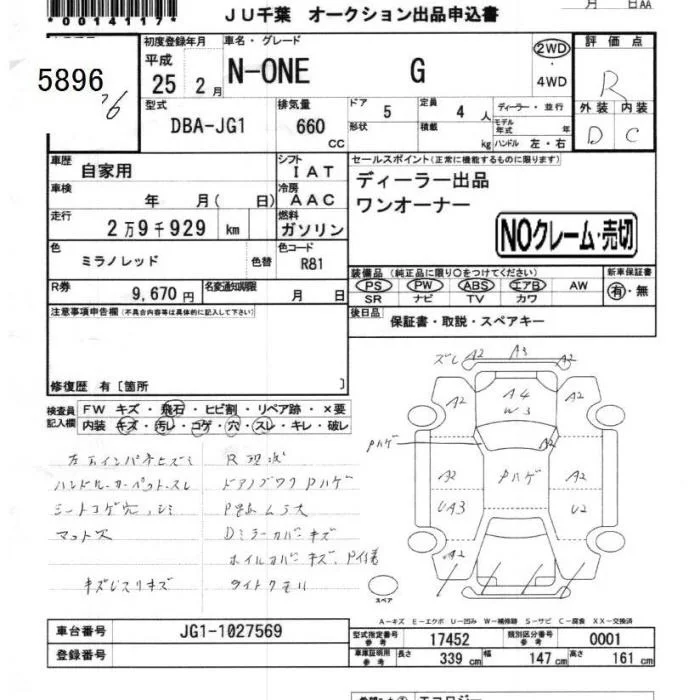 *0014117*
月 日AA
JU千葉 オークション出品申込書
初度登録年月 車名・グレード 評価点
5896
平成 25年 2月 N-ONE G 2WD 4WD R
型式 DBA-JG1 排気量 660cc ドア 5 定員 4人 ディーラー・並行 外装 内装
形状 積載 kg モデル年式 年 ハンドル 左・右 D C
車歴 自家用 シフト IAT セールスポイント(正常に機能するものに限ります)
車検 年 月( 日) 冷房 AAC ディーラー出品
走行 2万9千929km 燃料 ガソリン ワンオーナー
NOクレーム・売切
色 ミラノレッド 色替 色コード R81
装備品(純正品に限り○をつけてください) 新車保証書
PS PW ABS エアB AW 有・無
SR ナビ TV カワ
R券 9,670円 名変通知期限 月 日
後日品 保証書・取説・スペアキー
注意事項申告欄(不具合内容等は具体的に記入して下さい)
修復歴 有〔箇所 〕
検査員記入欄 FW キズ・飛石・ヒビ割・リペア跡・×要
内装 キズ・汚レ・コゲ・穴・スレ・キレ・破レ
ハンドル・カーペット・スレ ドアノブワクPハゲ
シートコゲ穴
マットズ
Dミラーカバーキズ
ホイルカバーキズ、P付着
ズレ A2 A3 A2
A2 A4 W3 A2
Pハゲ A2
A2 Pハゲ A2
UA3 U2
A2
スペア
A-キズ E-エクボ U-凹み W-補修跡 S-サビ C-腐食 XX-交換済
車台番号 JG1-1027569 型式指定番号参考 17452 類別区分番号参考 0001
登録番号 車庫証明用参考 長さ 339cm 幅 147cm 高さ 161cm
エコロジー